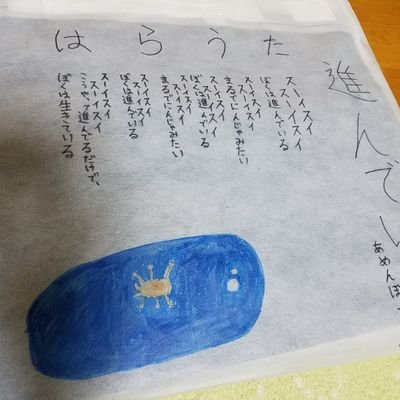 はらうた
進んでい
あめんぼ
スーイスイ
スーイスイ
ぼくは進んでいる
スーイスイ
スーイスイ
まるでにんじゃみたい
スーイスイ
スーイスイ
ぼくは進んでいる
スーイスイ
スーイスイ
まるでにんじゃみたい
スーイスイ
スーイスイ
ぼくは進んでいる
スーイスイ
スーイスイ
こうやって進んでるだけで、
ぼくは生きている